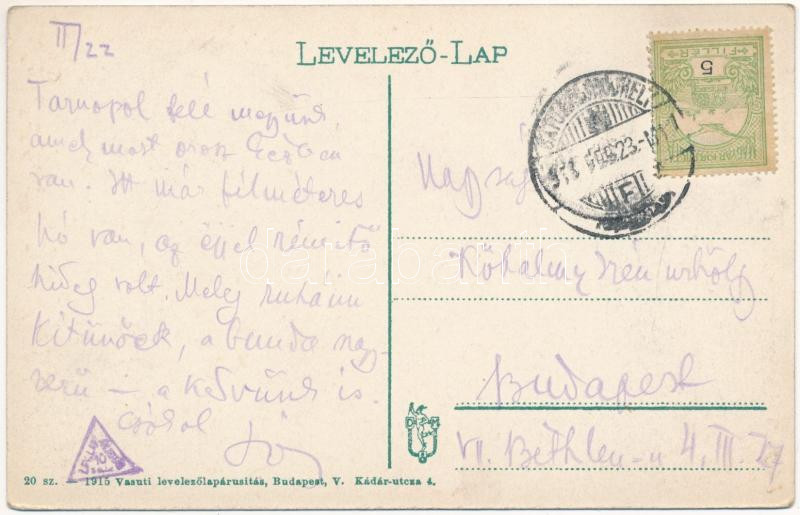 II/22
LEVELEZŐ-LAP
FILLÉR
5
Tarnopol felé megyünk,
amely most orosz kézben
van. Itt már félméteres
hó van, az éjjel rémítő
hideg volt. Meleg ruháim
kitünőek, a bunda nagy-
szerü — a kedvünk is.
Csókol
Nagys
Kőhalmy Irén urhölgy
Budapest
VII. Bethlen-u 4. III. 27
20 sz. — 1915 Vasuti levelezőlapárusitás, Budapest, V. Kádár-utcza 4.
D M
darabanth
F